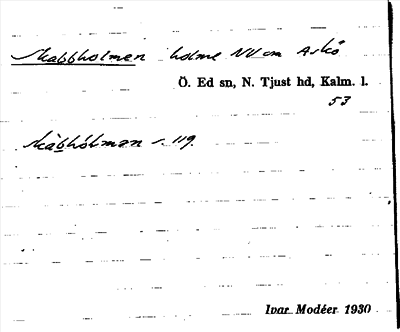 Skabbholmen holme NV om Askö
Ö. Ed sn, N. Tjust hd, Kalm. l.
53
skàbhòlman s. 119.
Ivar Modéer 1930